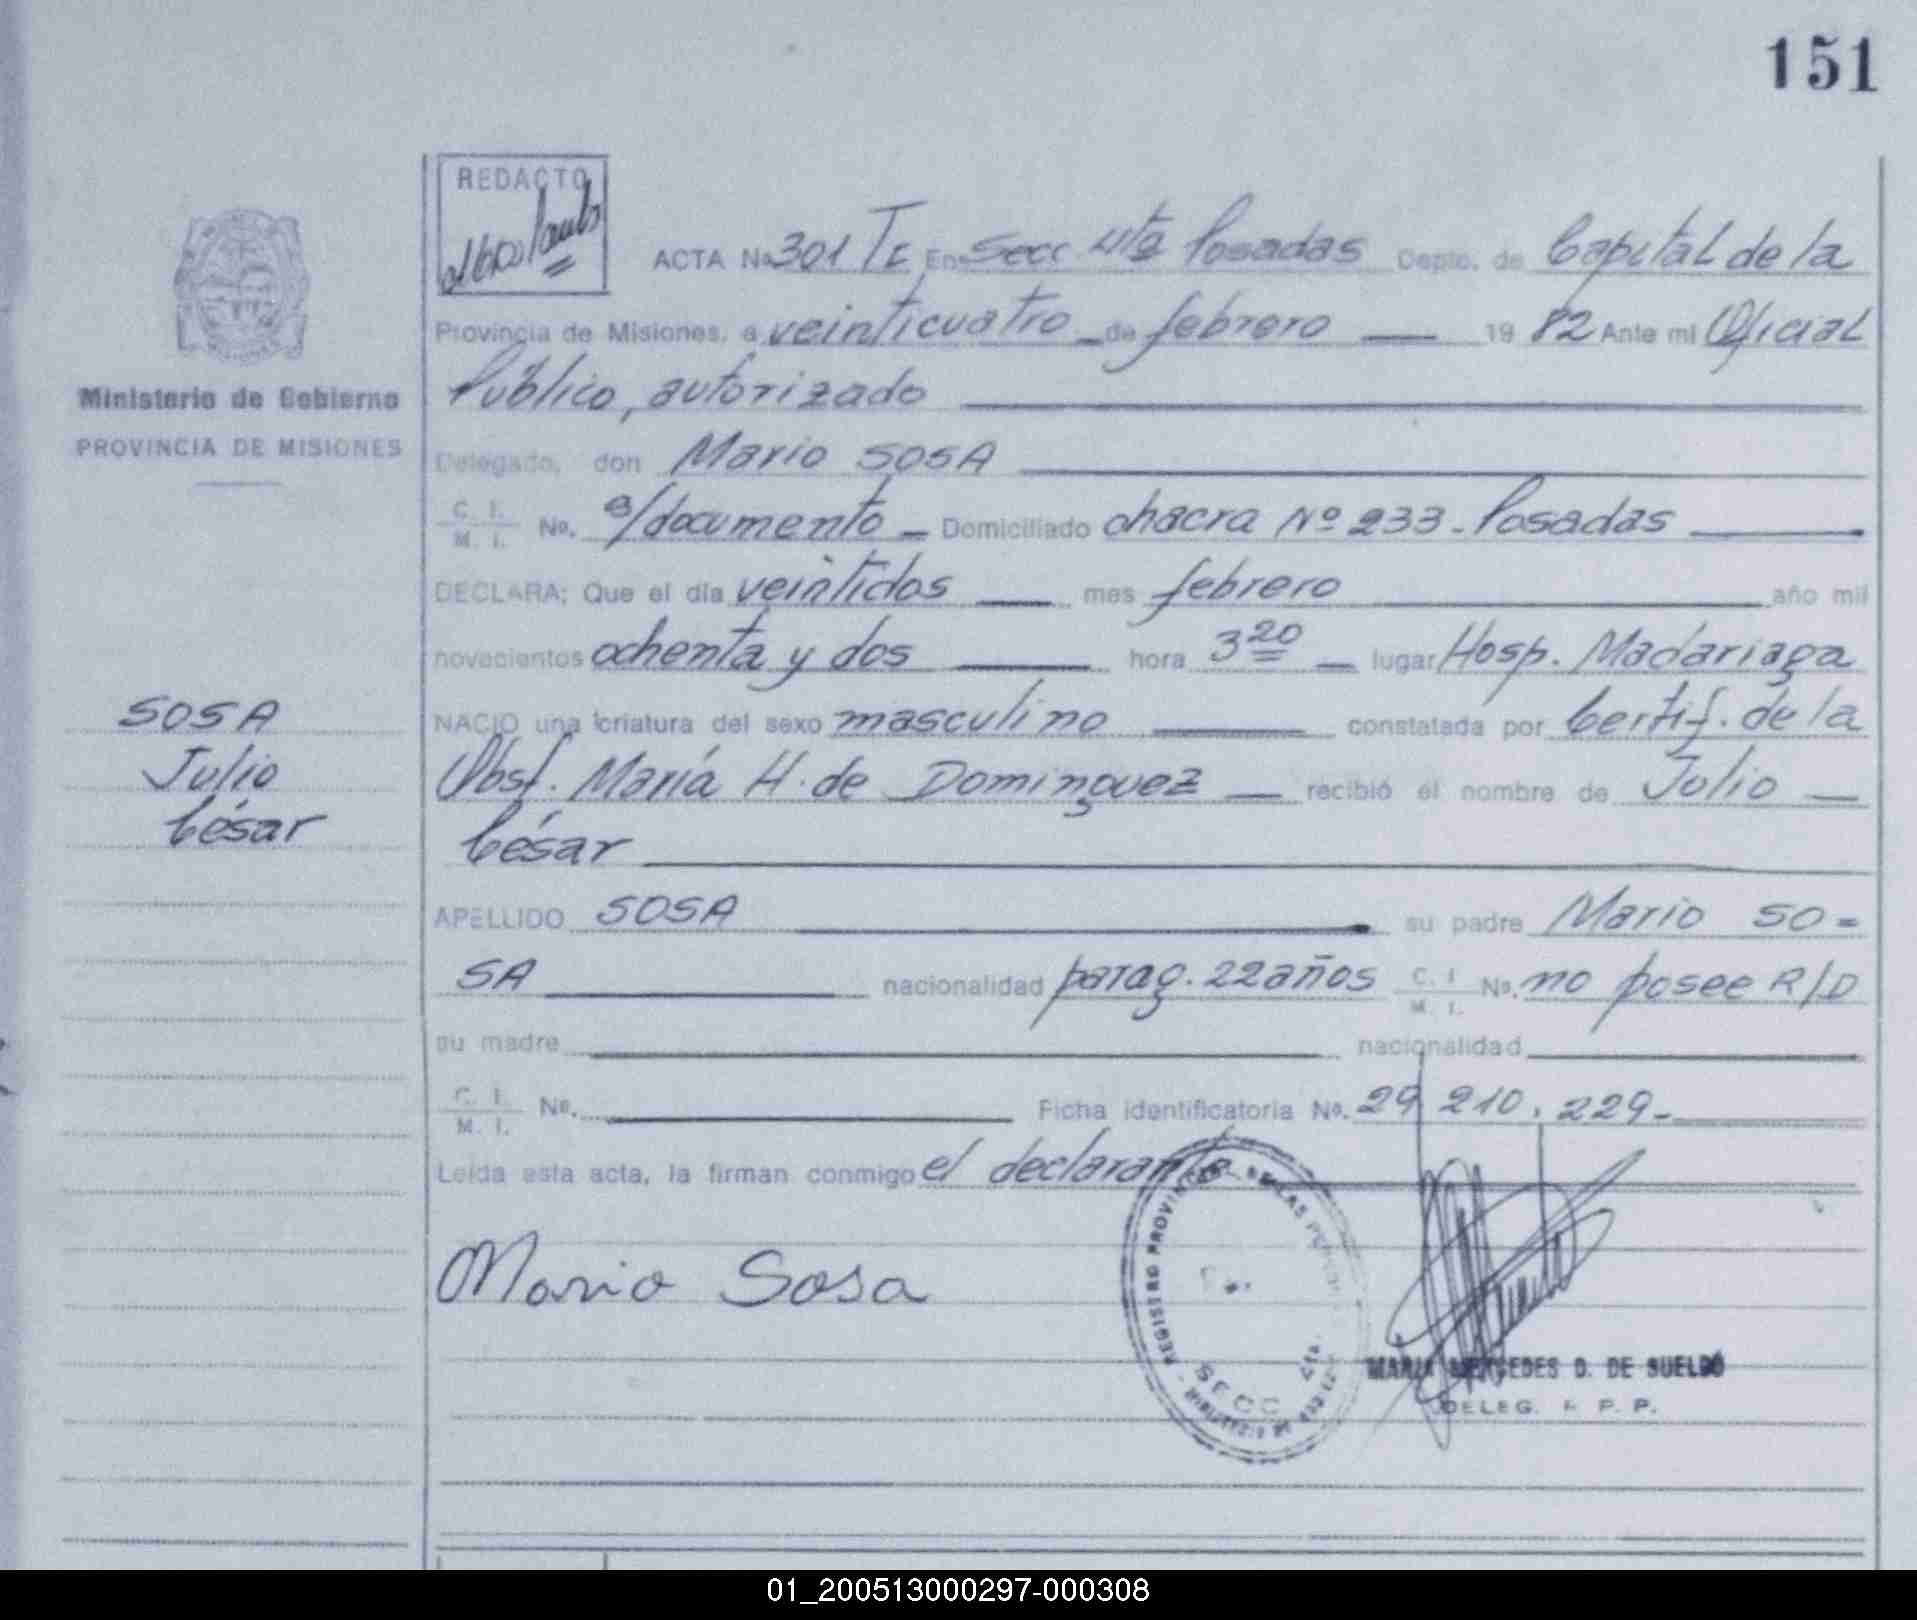 151
REDACTO
ACTA No 301 TE En Secc. 4ta Posadas Depto. de Capital de la
Provincia de Misiones, a veinticuatro de febrero 19 82 Ante mi Oficial
Público, autorizado
Ministerio de Gobierno
PROVINCIA DE MISIONES
Delegado, don Mario SOSA
C. I.
M. I. No. s/documento Domiciliado chacra Nº 233 - Posadas
DECLARA; Que el día veintidos mes febrero año mil
novecientos ochenta y dos hora 3 20 lugar Hosp. Madariaga
NACIO una criatura del sexo masculino constatada por Certif. de la
Obst. María H. de Dominguez recibió el nombre de Julio
César
SOSA
Julio
César
APELLIDO SOSA su padre Mario SO=
SA nacionalidad parag. 22 años C. I. M. I. No. no posee R/D
su madre nacionalidad
C. I.
M. I. No. Ficha identificatoria No. 29 210. 229-
Leída esta acta, la firman conmigo el declarante
Mario Sosa
REGISTRO PROVINCIAL DE LAS PERSONAS
SECC. 4ta.
MARIA MERCEDES D. DE SUELDO
DELEG. R. P. P.
01_200513000297-000308